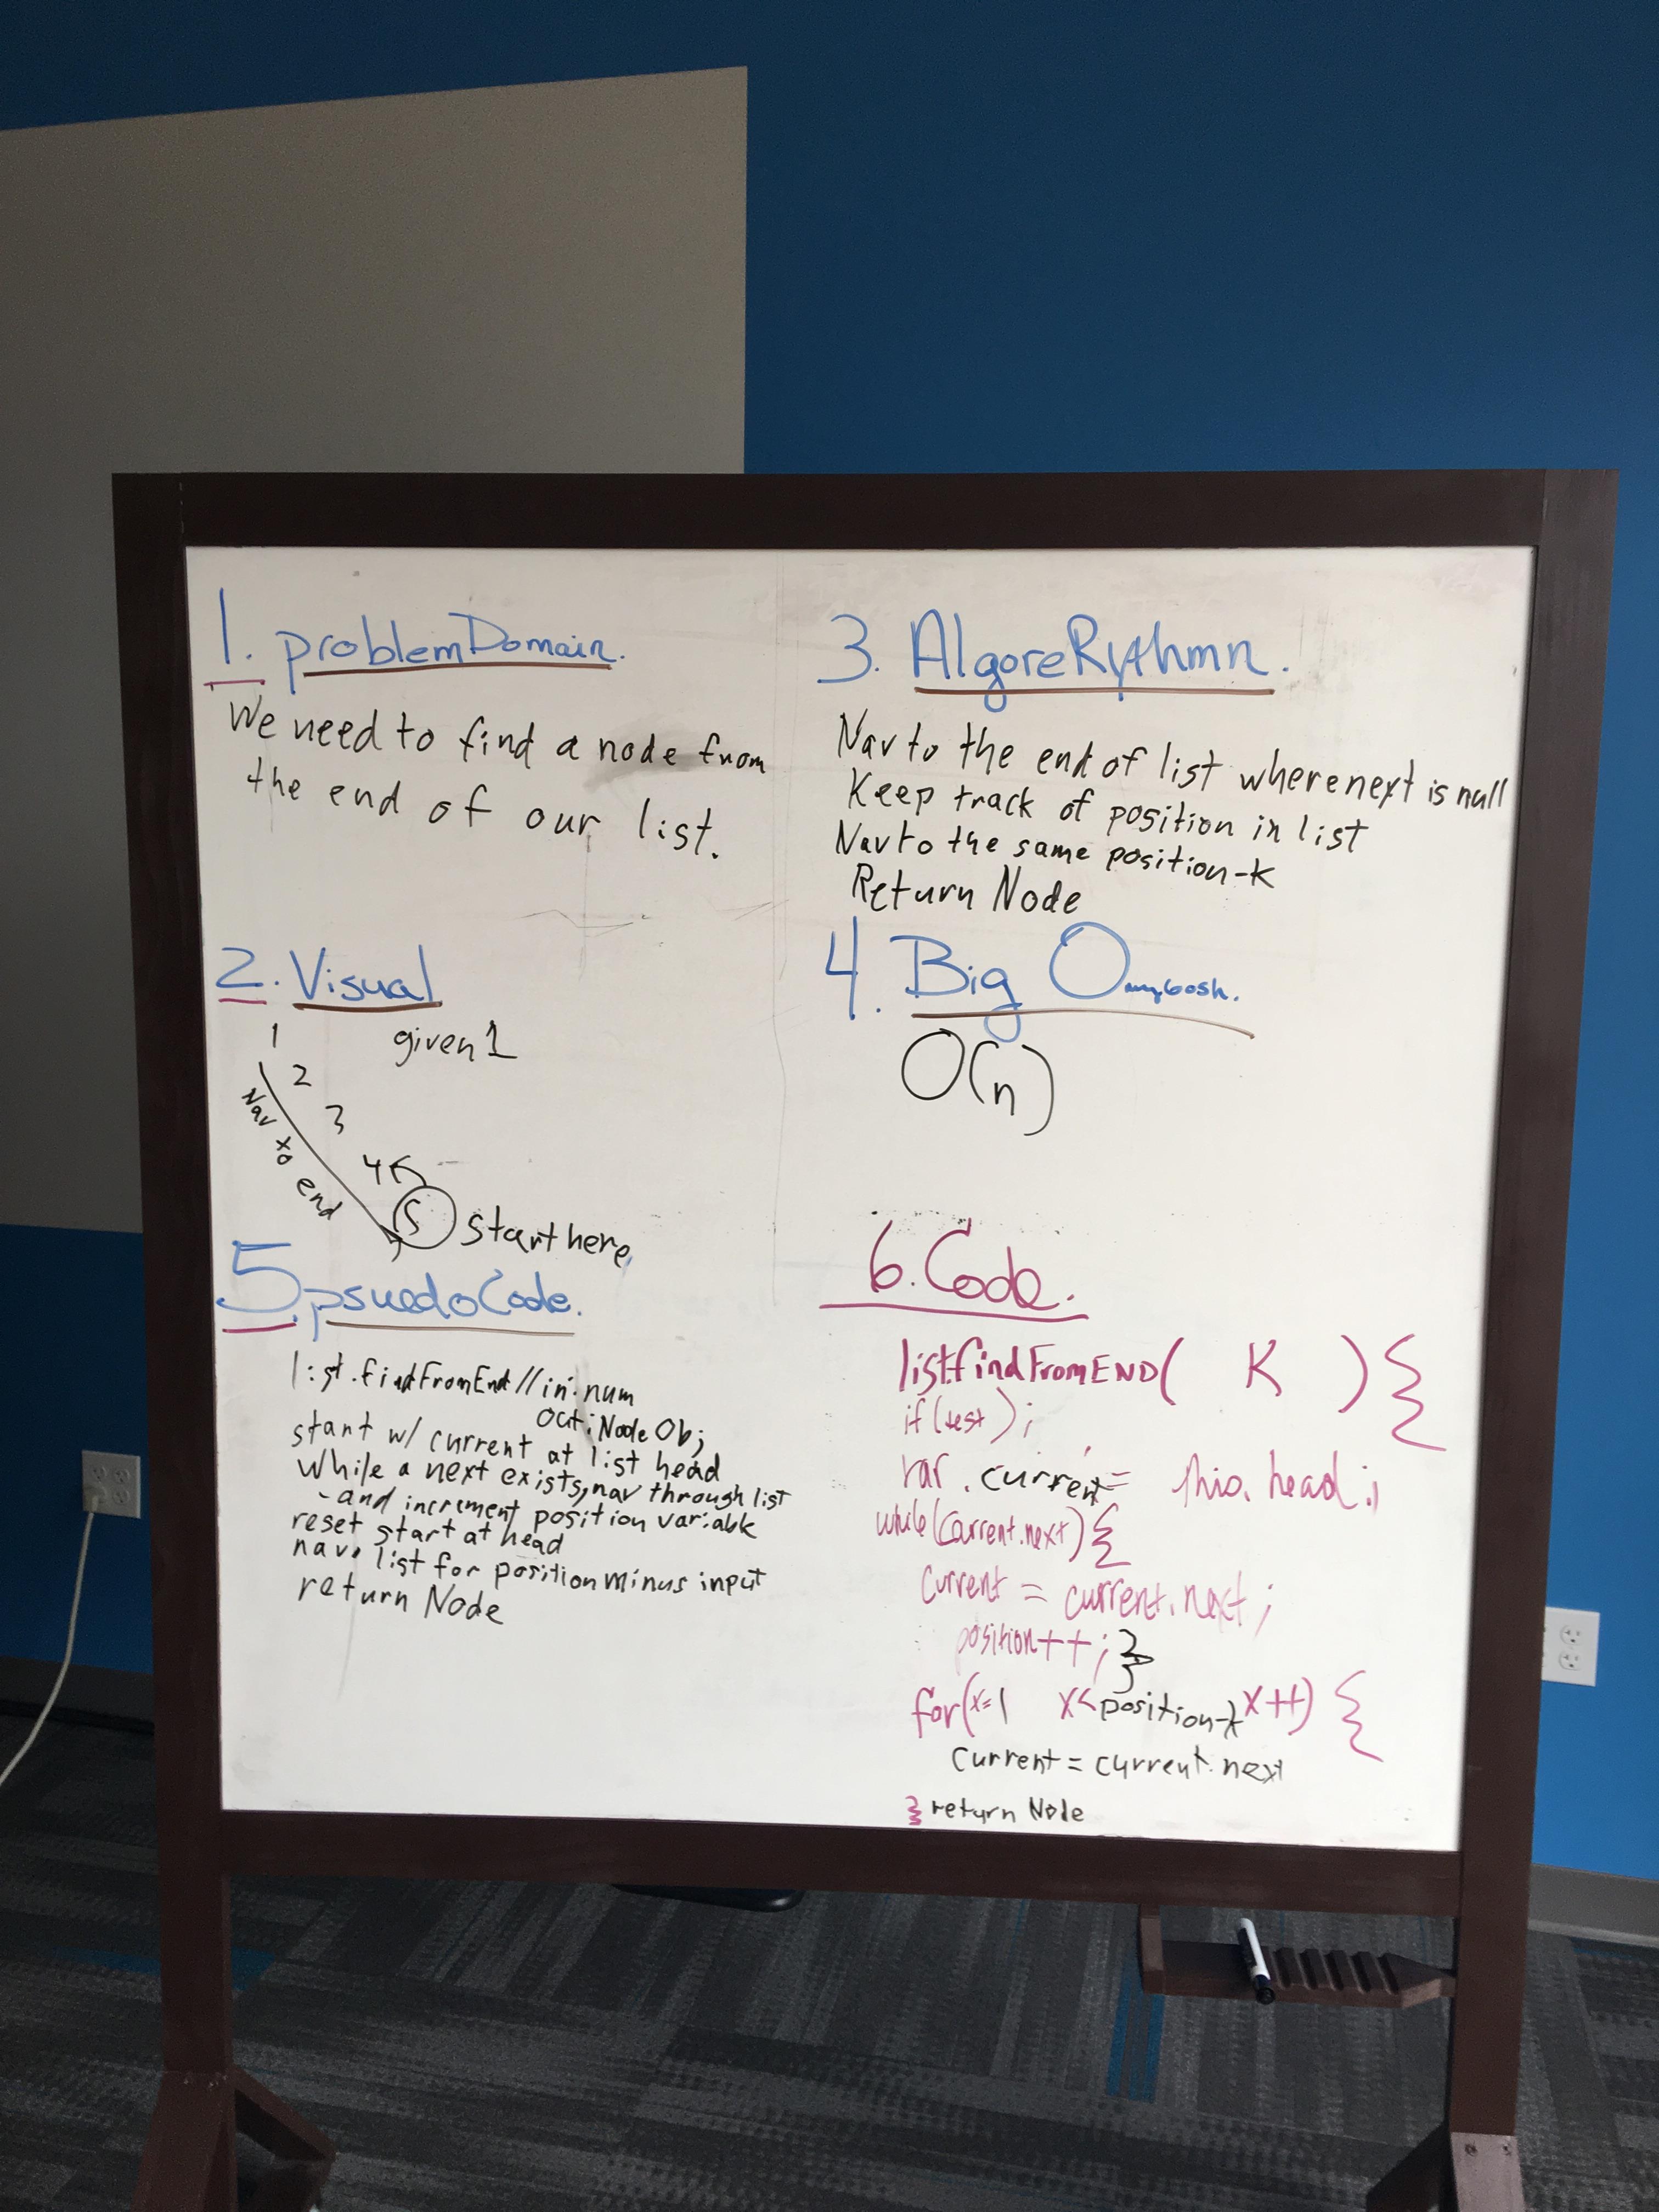 1. problem Domain.
We need to find a node from
the end of our list.
2. Visual
given 1
1 2 3 4 5 start here
end
5. psuedo Code.
list.findFromEnd // in: num
out: Node Obj
start w/ current at list head
while a next exists, nav through list
- and increment position variable
reset start at head
nav. list for position minus input
return Node
3. AlgoreRythmn.
Nav to the end of list where next is null
Keep track of position in list
Nav to the same position -k
Return Node
4. Big O mygoosh.
O(n)
6. Code.
list.findFromEND( K ) {
if( );
var. current = this.head;
while(current.next) {
current = current.next;
position++; }
for(x=1 x<position-k x++) {
current = current.next
} return Node